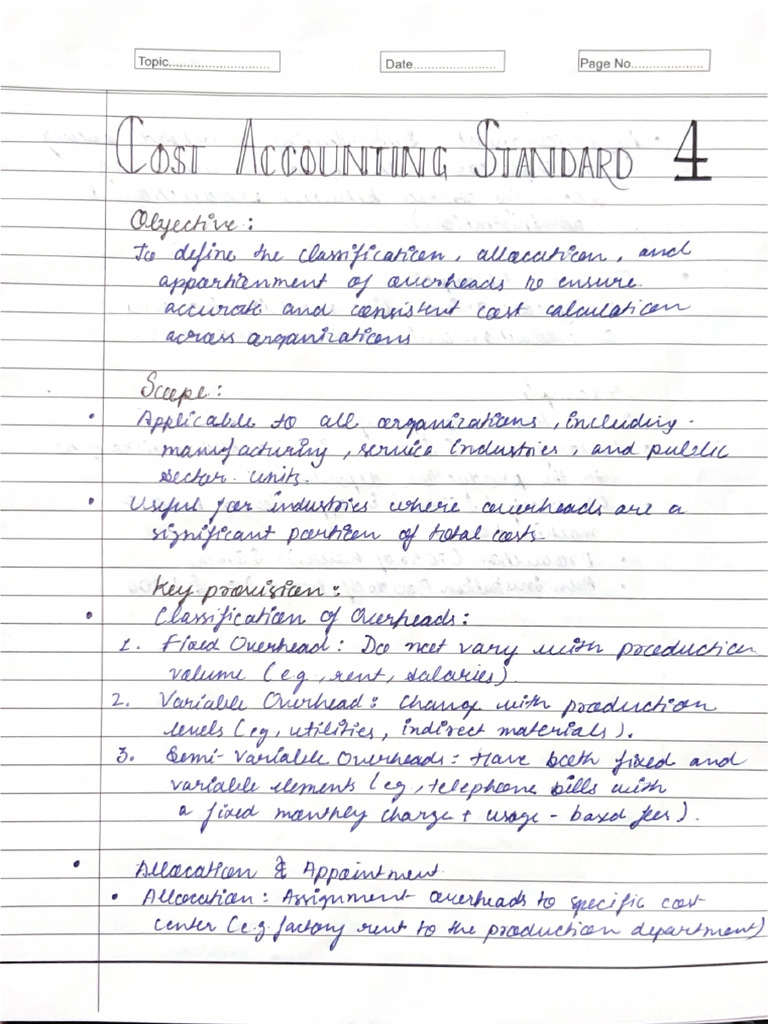 Topic............................ Date....................... Page No....................
COST ACCOUNTING STANDARD 4
Objective:
To define the classification, allocation, and
apportionment of overheads to ensure
accurate and consistent cost calculation
across organizations
Scope:
• Applicable to all organizations, including
manufacturing, service industries, and public
sector units.
• Useful for industries where overheads are a
significant portion of total costs
Key provision:
• Classification of Overheads:
1. Fixed Overhead: Do not vary with production
volume (eg, rent, salaries).
2. Variable Overhead: Change with production
levels (eg, utilities, indirect materials).
3. Semi-Variable Overheads: Have both fixed and
variable elements (eg, telephone bills with
a fixed monthly charge + usage-based fees).
• Allocation & Appointment
• Allocation: Assignment overheads to specific cost
center (e.g. factory rent to the production department)